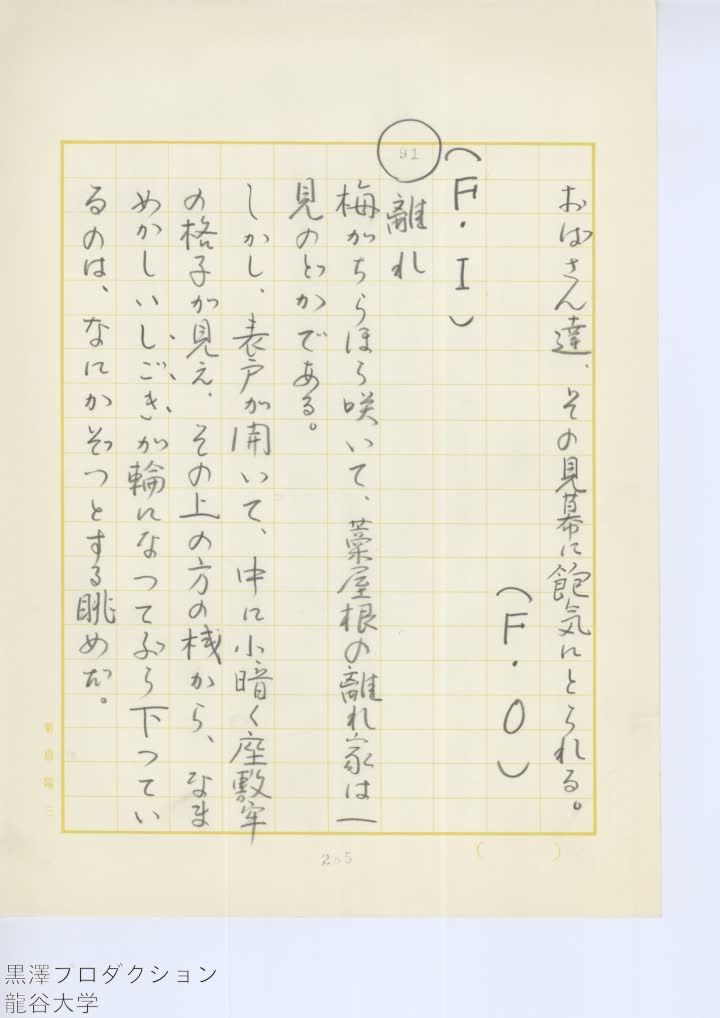 おばさん達、その見幕に飽気にとられる。
(F・O)
(F・I)
91
離れ
梅がちらほら咲いて、藁屋根の離れ家は一
見のどかである。
しかし、表戸が開いて、中に小暗く座敷牢
の格子が見え、その上の方の桟から、なま
めかしいしごきが輪になつてぶら下つてい
るのは、なにかぞつとする眺めだ。
205
黒澤プロダクション
龍谷大学